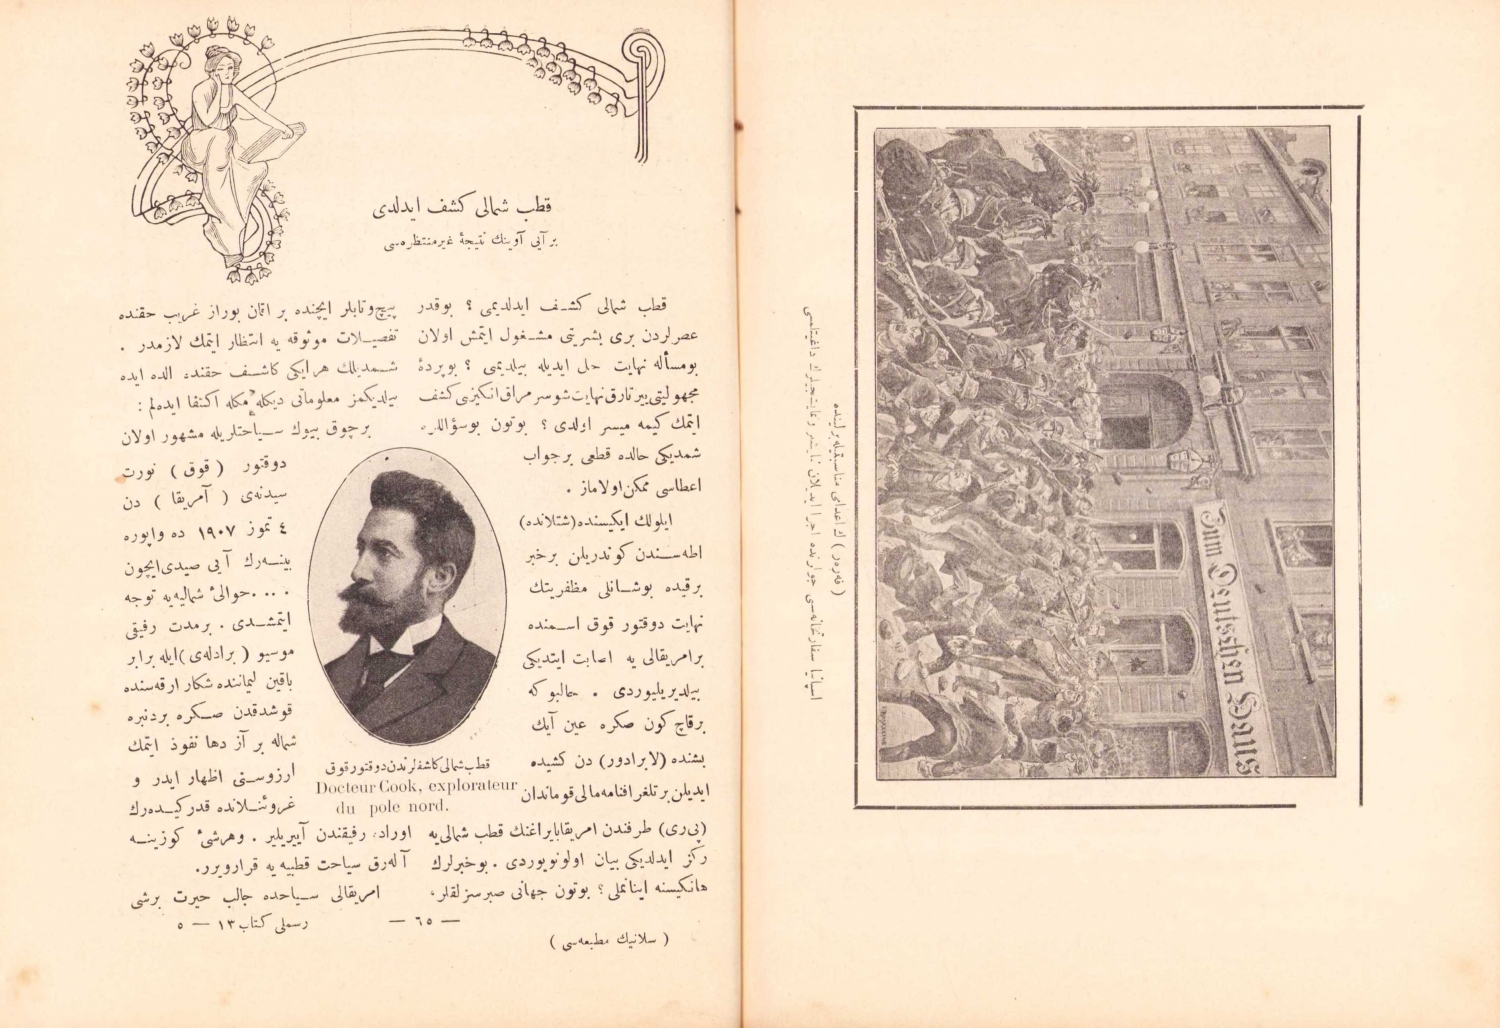 قطب شمالی کشف ایدلدی
بر آیی آوینك نتیجهٔ غیرمنتظره‌سی
قطب شمالی کشف ایدلدیمی ؟ بوقدر
عصرلردن بری بشریتی مشغول ایتمش اولان
بومسأله نهایت حل ایدیله بیلدیمی ؟ بوپردهٔ
مجهولیتی ییرتارق نهایت شو سر مراق‌انکیزی کشف
ایتمك کیمه میسر اولدی ؟ بوتون بوسؤاللره
شمدیکی حالده قطعی برجواب
اعطاسی ممکن اولاماز .
ایلولك ایکیسنده (شتلانده)
اطه‌سندن کوندریلن برخبر
برقیده بوشانلی مظفریتك
نهایت دوقتور قوق اسمنده
برامریقالی یه اصابت ایتدیکی
بیلدیریلیوردی . حالبو که
برقاچ کون صکره عین آیك
بشنده (لابرادور) دن کشیده
ایدیلن برتلغرافنامه‌مالی قوماندان
(پی‌ری) طرفندن امریقابایراغنك قطب شمالی‌یه
رکز ایدلدیکی بیان اولونویوردی . بوخبرلرك
هانکیسنه اینانملی ؟ بوتون جهانی صبرسزلقلر،
پیچ‌وتابلر ایچنده بر اقان بوراز غریب حقنده
تفصیلات موثوقه یه انتظار ایتمك لازمدر .
شمدیلك هرایکی کاشف حقنده الده ایده
بیلدیکمز معلوماتی دیکله‌مکله اکتفا ایده‌لم :
برچوق بیوك سیاحتلریله مشهور اولان
دوقتور ( قوق ) نورت
سیدنه‌ی ( آمریقا ) دن
٤ تموز ١٩٠٧ ده واپوره
بینه‌رك آیی صیدی‌ایچون
. . . .حوالیٔ شمالیه‌یه توجه
ایتمشدی . برمدت رفیقی
موسیو ( برادله‌ی ) ایله برابر
باقین لیماننده شکار ارقه‌سنده
قوشدقدن صکره بردنبره
شماله بر آز دها نفوذ ایتمك
ارزوسنی اظهار ایدر و
غروئنلانده قدر کیده‌رك
اوراده رفیقندن آییریلیر . وهرشیٔ کوزینه
آله‌رق سیاحت قطبیه یه قرارویرر.
امریقالی سیاحده جالب حیرت برشی
قطب شمالی کاشفلرندن دوقتور قوق
Docteur Cook, explorateur
du pole nord.
— ٦٥ —
رسملی کتاب ١٣ — ٥
( سلانیك مطبعه‌سی )
Zum Deutschen Haus
( فه‌ره‌ر ) ك اعدامی مناسبتیله برلینده
اسپانیا سفارتخانه‌سی جوارنده اجرا ایدیلان نمایشلر و نمایشجیلرك داغیتلمسی